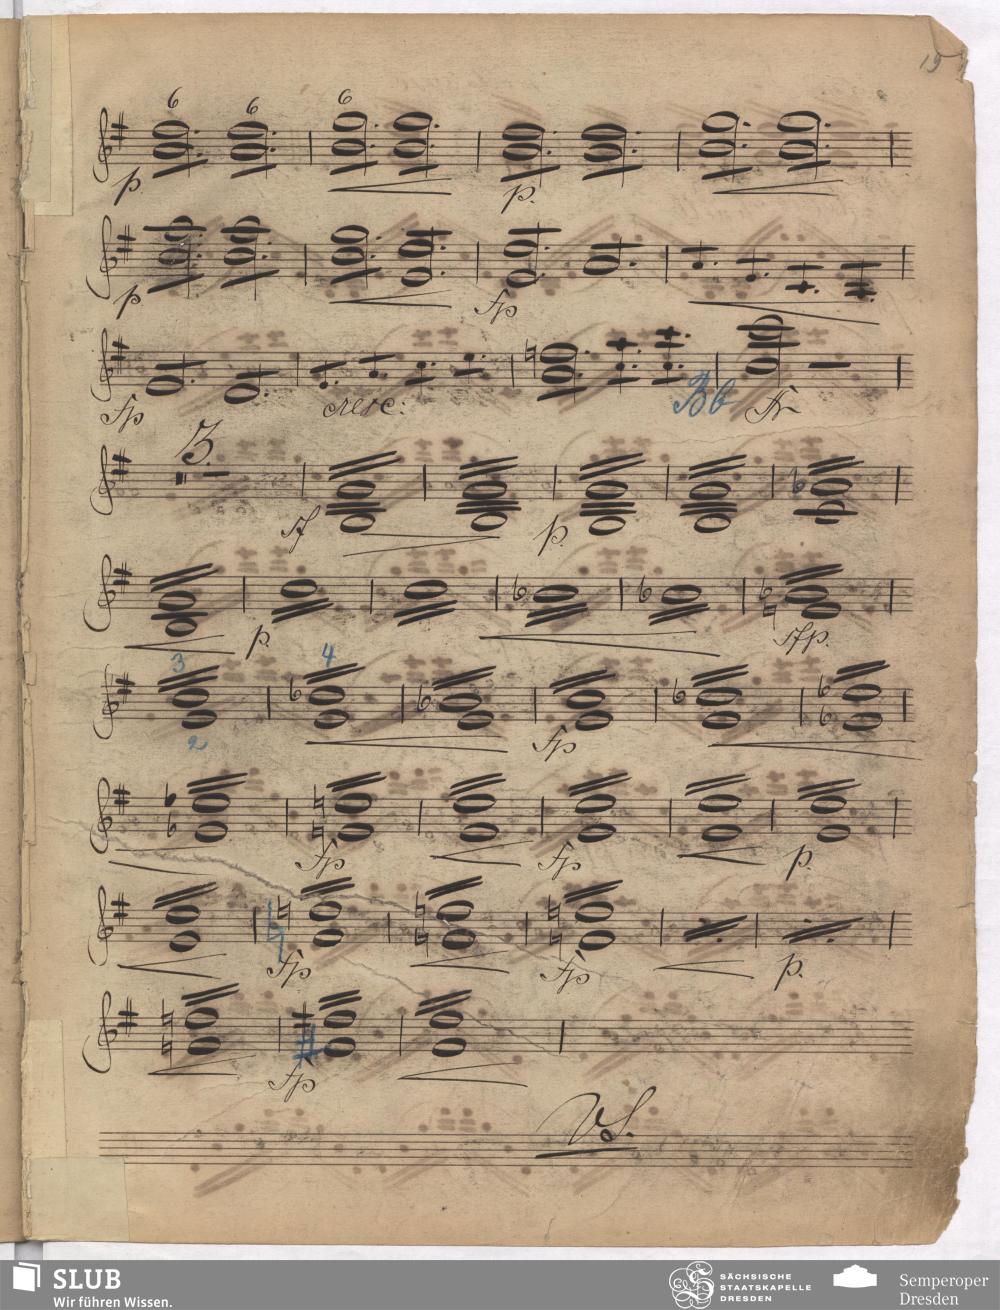 19
6 6 6
p p.
p fp
fp cresc: Bb fr
3.
sf p.
p. sfp.
3 4
2
fp
fp fp p.
fp fp p.
fp
V.S.
SLUB
Wir führen Wissen.
SÄCHSISCHE
STAATSKAPELLE
DRESDEN
Semperoper
Dresden